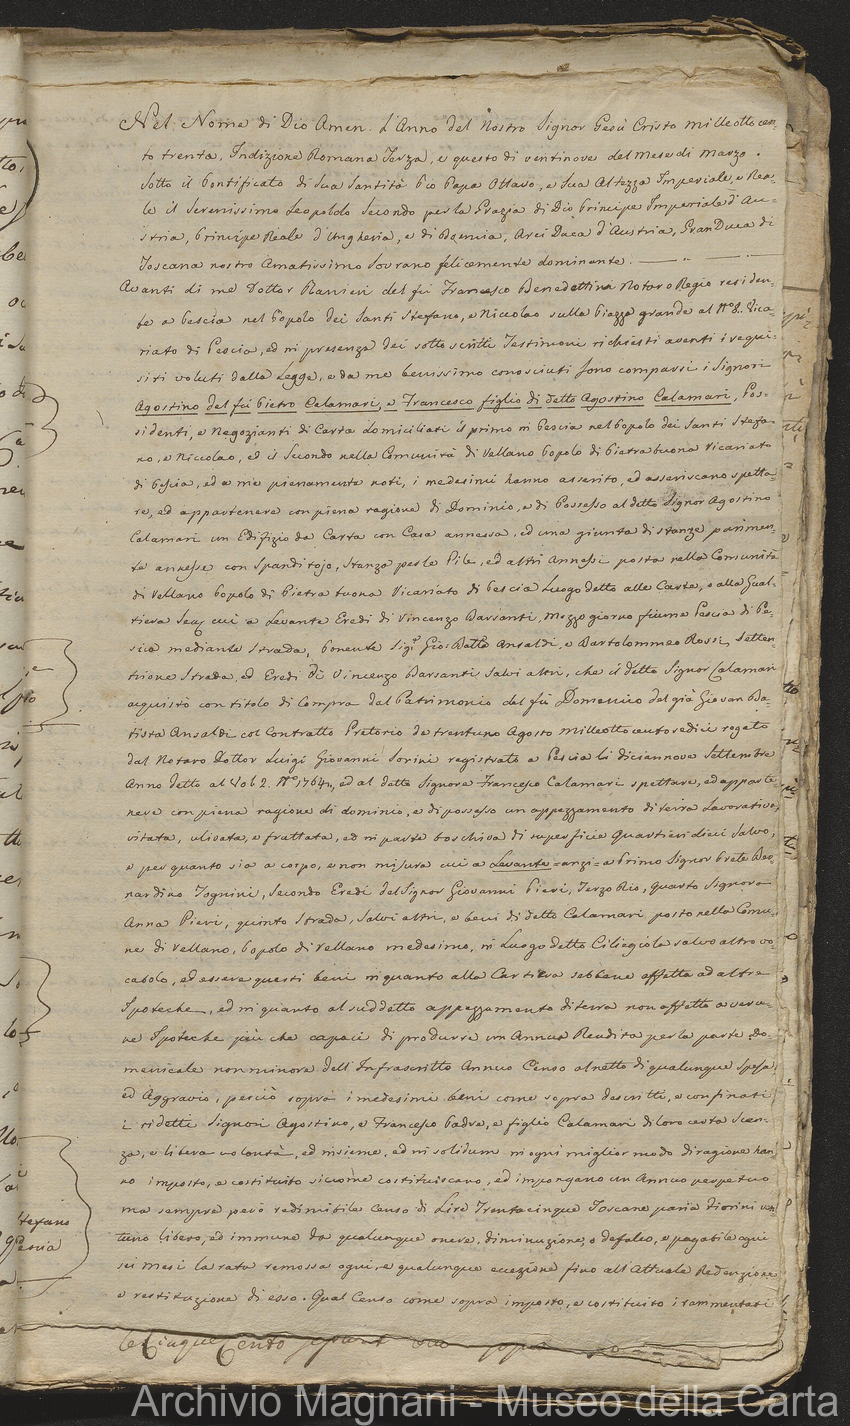 Nel Nome di Dio Amen. L'Anno del Nostro Signor Gesù Cristo milleottocen-
to trenta, Indizione Romana Terza, e questo dì ventinove del Mese di Marzo.
Sotto il Pontificato di Sua Santità Pio Papa Ottavo, e Sua Altezza Imperiale, e Rea-
le il Serenissimo Leopoldo Secondo per la Grazia di Dio Principe Imperiale d'Au-
stria, Principe Reale d'Ungheria, e di Boemia, Arci Duca d'Austria, Gran Duca di
Toscana nostro Amatissimo Sovrano felicemente dominante.
Avanti di me Dottor Ranieri del fù Francesco Benedettini Notaro Regio residen-
te a Pescia nel Popolo dei Santi Stefano, e Niccolao sulla Piazza grande al N.° 2. Vica-
riato di Pescia, ed in presenza dei sotto scritti Testimoni richiesti aventi i requi-
siti voluti dalla Legge, e da me benissimo conosciuti sono comparsi i Signori
Agostino del fù Pietro Calamari, e Francesco figlio di detto Agostino Calamari, Pos-
sidenti, e Negozianti di Carta domiciliati il primo in Pescia nel Popolo dei Santi Stefa-
no, e Niccolao, ed il Secondo nella Comunità di Vellano Popolo di Pietrabuona Vicariato
di Pescia, ed a me pienamente noti, i medesimi hanno asserito, ed asseriscano spetta-
re, ed appartenere con piena ragione di Dominio, e di Possesso al detto Signor Agostino
Calamari un Edifizio da Carta con Casa annessa, ed una giunta di stanze parimen-
te annesse con Spanditojo, Stanza per le Pile, ed altri Annessi posta nella Comunità
di Vellano Popolo di Pietra buona Vicariato di Pescia Luogo detto alle Carte, o alla Gual-
tiera cui a Levante Eredi di Vincenzo Barsanti, Mezzo giorno fiume Pescia di Pe-
scia mediante Strada, Ponente Sig.i Gio: Batta Ansaldi, e Bartolommeo Rossi, Setten-
trione Strada, ed Eredi di Vincenzo Barsanti salvi altri, che il detto Signor Calamari
acquistò con titolo di Compra dal Patrimonio del fù Domenico del già Giovan Ba-
tista Ansaldi col Contratto Pretorio de trentuno Agosto milleottocento sedici rogato
dal Notaro Dottor Luigi Giovanni Sorini registrato a Pescia li diciannove Settembre
Anno detto al Vol. 2. N.° 1764, ed al detto Signore Francesco Calamari spettare, ed apparte-
nere con piena ragione di dominio, e di possesso un appezzamento di terra lavorativo,
vitata, ulivata, e fruttata, ed in parte boschiva di superficie Quartieri dieci salvo,
e per quanto sia a corpo, e non misura cui a Levante = anzi = a Primo Signor Prete Ber-
nardino Tognini, Secondo Eredi del Signor Giovanni Pieri, Terzo Rio, Quarto Signora
Anna Pieri, quinto Strada, salvi altri, e beni di detto Calamari posto nella Comu-
ne di Vellano, Popolo di Vellano medesimo, in Luogo detto Ciliegiola salvo altro vo-
cabolo, ed essere questi beni in quanto alla Cartiera sebbene affetta ad altre
Ipoteche, ed in quanto al suddetto appezzamento di terra non affetto a veru-
ne Ipoteche più che capaci di produrre un Annua Rendita per la parte do-
menicale non minore dell'Infrascritto Annuo Censo al netto di qualunque spesa,
ed Aggravio, perciò sopra i medesimi beni come sopra descritti, e confinati
i ridetti Signori Agostino, e Francesco Padre, e figlio Calamari di loro certa Scien-
za, e libera volontà, ed insieme, ed in solidum in ogni miglior modo di ragione han-
no imposto, e costituito siccome costituiscano, ed impongano un Annuo perpetuo
ma sempre però redimibile Censo di Lire Trentacinque Toscane paria Fiorini ven-
tuno libero, ed immune da qualunque onere, diminuzione, o defalco, e pagabile ogni
sei mesi la rata remossa ogni, e qualunque eccezione fino all'Attuale Redenzione
e restituzione di esso. Qual Censo come sopra imposto, e costituito i rammentati
Cinque Cento
Stefano
Pescia
Archivio Magnani - Museo della Carta